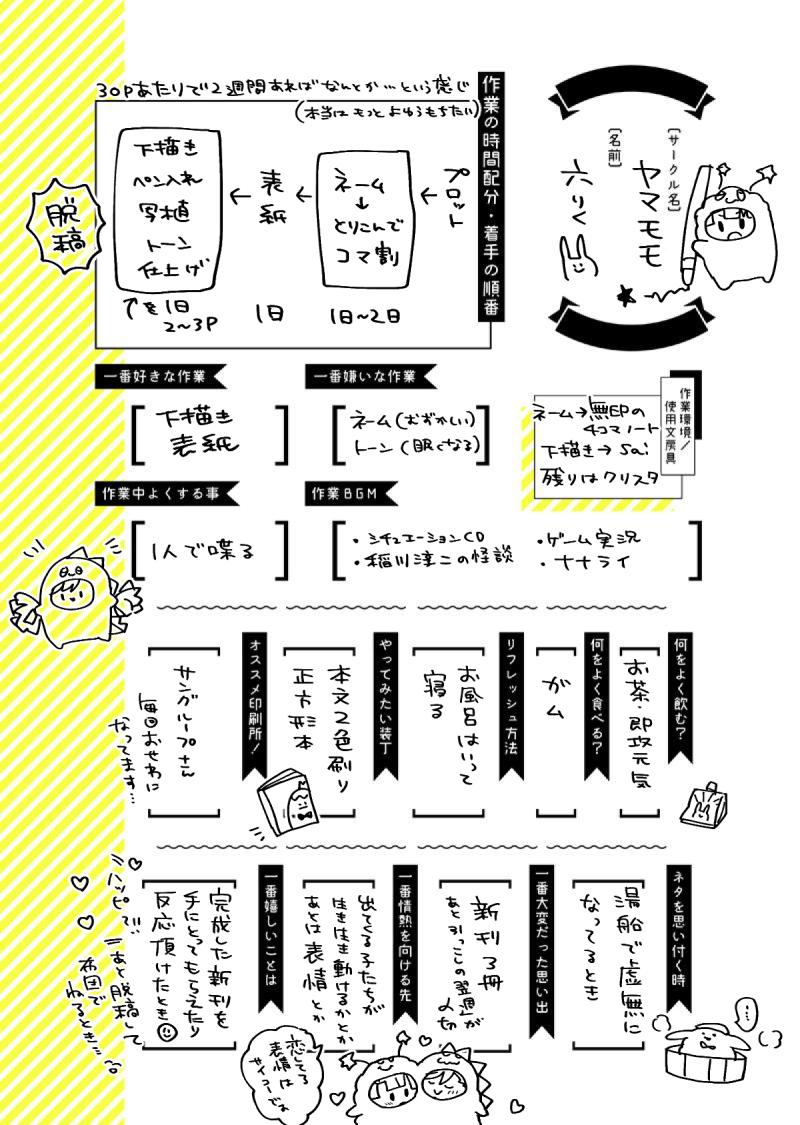 [サークル名]
ヤマモモ
[名前]
六りく
作業の時間配分・着手の順番
30Pあたりで2週間あればなんとか…という感じ
(本当はもっとよゆうもちたい)
プロット
←
ネーム
↓
とりこんで
コマ割
1日~2日
←
表紙
1日
←
下描き
ペン入れ
写植
トーン
仕上げ
↑を1日
2~3P
脱稿
一番好きな作業
下描き
表紙
一番嫌いな作業
ネーム(むずかしい)
トーン(眠くなる)
作業環境/
使用文房具
ネーム→無印の
4コマノート
下描き→Sai
残りはクリスタ
作業中よくする事
1人で喋る
作業BGM
・シチュエーションCD
・稲川淳二の怪談
・ゲーム実況
・ナナライ
何をよく飲む?
お茶・即攻元気
何をよく食べる?
ガム
リフレッシュ方法
お風呂はいって
寝る
やってみたい装丁
本文2色刷り
正方形本
オススメ印刷所!
サングループさん
毎回おせわに
なってます…
ネタを思い付く時
湯船で虚無に
なってるとき
…
一番大変だった思い出
新刊3冊
あと引っこしの翌週が
一番情熱を向ける先
出てくる子たちが
はきはき動けるかとか
あとは表情とか
恋してる
表情は
サイコーでよ
一番嬉しいことは
完成した新刊を
手にとってもらえたり
反応頂けたとき
ハッピー!!
あと脱稿して
布団で
ねるとき…